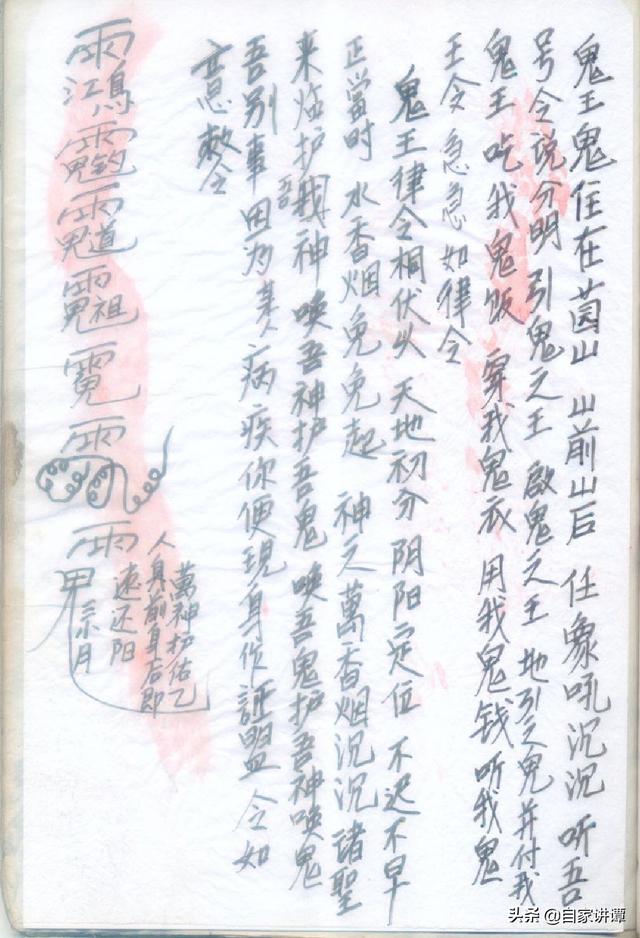 鬼王鬼住在茵山 山前山后 任象吼沉沉 听吾
号令说分明引鬼之王 啟鬼之王 地引之鬼并付我
鬼王 吃我鬼饭 穿我鬼衣 用我鬼钱 听我鬼
王令 急急如律令
鬼王律令相伏从 天地初分 阴阳定位 不迟不早
正當时 水香烟免免起 神之萬香烟沉沉 诸聖
来临护吾我神 唤吾神护吾鬼 唤吾鬼护吾神唤鬼
吾别事 因为某人病疾你便现身作証盟 令如
意敕令
萬神护佑乙
人身前身后即
速还阳
头条 @自家讲谭